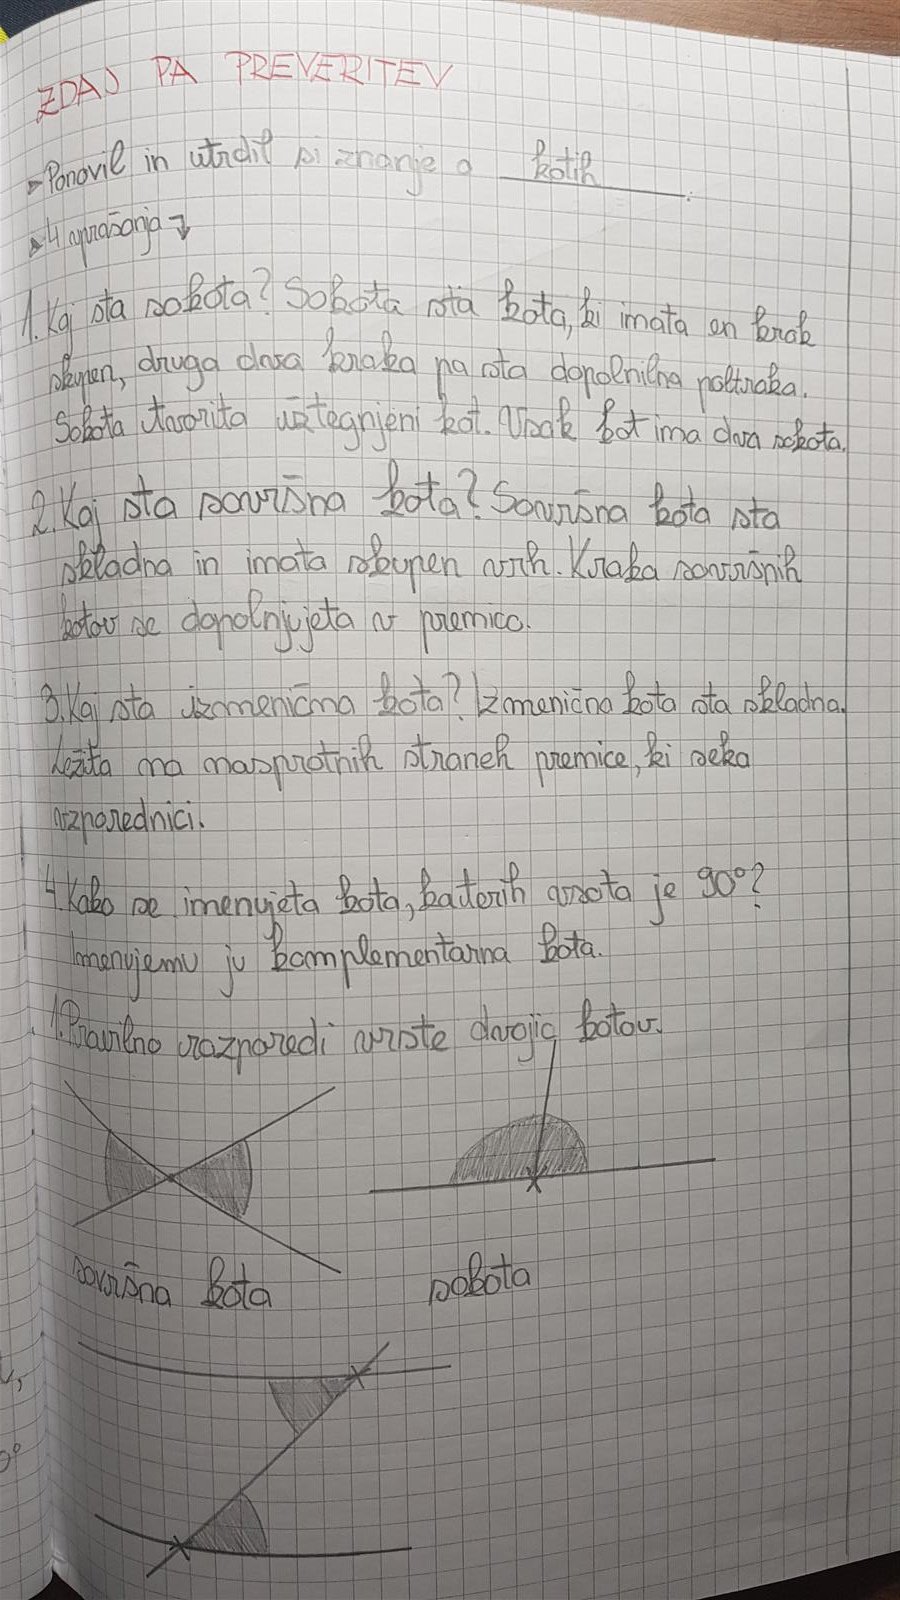 ZDAJ PA PREVERITEV
Ponovil in utrdil si znanje o kotih.
4 vprašanja
1. Kaj sta sokota? Sokota sta kota, ki imata en krak
skupen, druga dva kraka pa sta dopolnilna poltraka.
Sokota tvorita iztegnjeni kot. Vsak kot ima dva sokota.
2. Kaj sta sovršna kota? Sovršna kota sta
skladna in imata skupen vrh. Kraka sovršnih
kotov se dopolnjujeta v premico.
3. Kaj sta izmenična kota? Izmenična kota sta skladna.
Ležita na nasprotnih straneh premice, ki seka
vzporednici.
4. Kako se imenujeta kota, katerih vsota je 90°?
Imenujemu ju komplementarna kota.
1. Pravilno razporedi vrste dvojic kotov.
sovršna kota
sokota